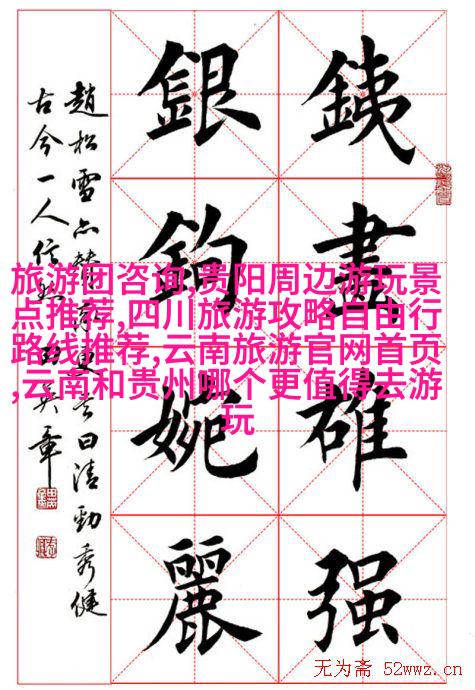 銕畫確强
銀鉤婉麗
趙松雪曰清勁秀健
古今一人信然田英章
旅游团咨询,贵阳周边游玩景
点推荐,四川旅游攻略自由行
路线推荐,云南旅游官网首页
,云南和贵州哪个更值得去游
玩
无为斋 52wwz.cn